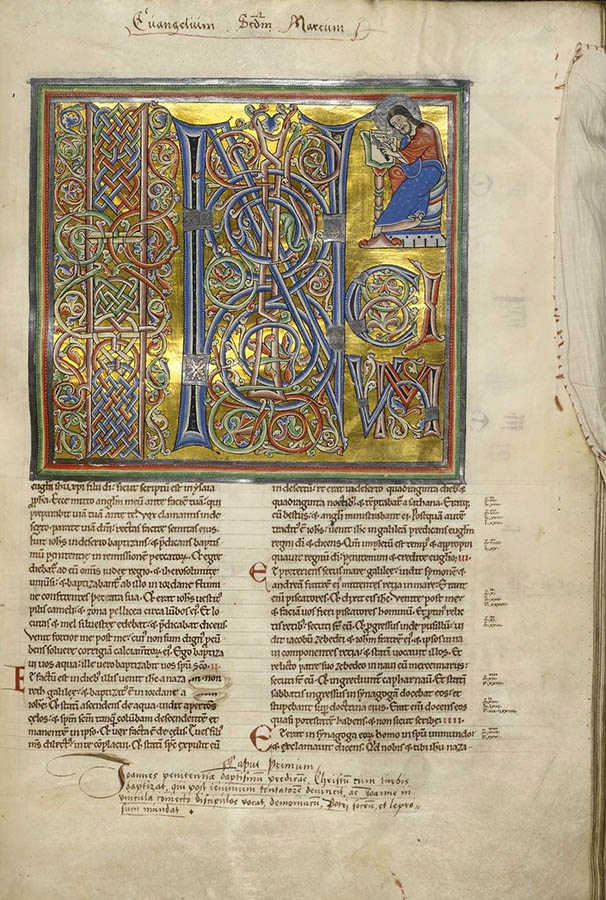 Euangelium Secdm Marcum
INICIVM
euglii ihu xpi filii di. sicut scriptu est in ysaia
ppha. Ecce mitto anglm meu ante facie tua. qui
preparabit uia tua ante te. vox clamantis in de
serto. parate uia dni. rectas facite semitas eius.
fuit iohs in deserto baptizans & pdicans baptis
mu penitentie in remissione peccator. Et egre
diebat ad illu omis iudee regio & iherosolimite
uniusi. & baptizabant ab illo in iordane flumi
ne confitentes peccata sua. Et erat iohs uestit
pilis cameli. & zona pellicea circa lubos ei. Et lo
custas & mel siluestre edebat. & pdicabat dicens.
venit fortior me post me. cui non sum dign pcu
bens soluere corrigia calciamtor ei. Ego baptiza
ui uos aqua. ille uero baptizabit uos spu sco. II
Et factu est in dieb illis. uenit ihc a naza
reth galilee. & baptizat e in iordane a
iohe. Et statim ascendens de aqua. uidit apertos
celos. & spm scm tanq columba descendente &
manente in ipso. Et vox facta e de celis. Tu es fili
ms dilect. in te complacui. Et statim sps expulit eu
in desertu. Et erat in deserto quadraginta dieb &
quadraginta noctib. & teptabat a sathana. Eratq
cu bestiis. & angli ministrabant ei. Postqua aute
tradit e iohs. uenit ihc in galilea predicans euglm
regni di. & dicens. Qm impletu est temp & appropin
quauit regnu di. penitemini & credite euglio. III
Et preteriens secus mare galilee. uidit symone &
andrea fratre ei mittentes retia in mare. Erant
eni piscatores. Et dixit eis ihc. Venite post me.
& facia uos fieri piscatores hominu. Et ptin relic
tis retib. secuti st eu. Et pgressus inde pusillu. ui
dit iacobu zebedei & iohm fratre ei. & ipsos in na
ui componentes retia. & stati uocauit illos. Et
relicto patre suo zebedeo in naui cu mercennariis.
secuti st eu. Et ingrediunt capharnau. Et statim
sabbatis ingressus in synagoga docebat eos. &
stupebant sup doctrina eius. Erat eni docens eos
quasi potestate habens. & non sicut scribe. IIII
Et erat in synagoga eor homo in spu inmundo.
& exclamauit dicens. Qd nobis & tibi ihu naza
Caput Primum
Joannes penitentiae baptismum praedicat, Christus cum turbis
baptizat, qui post ieiunium tentatorem deuincit, ac Joanne in
vincula coniecto discipulos vocat, demoniacu, Petri socru, et lepro-
sum mundat.